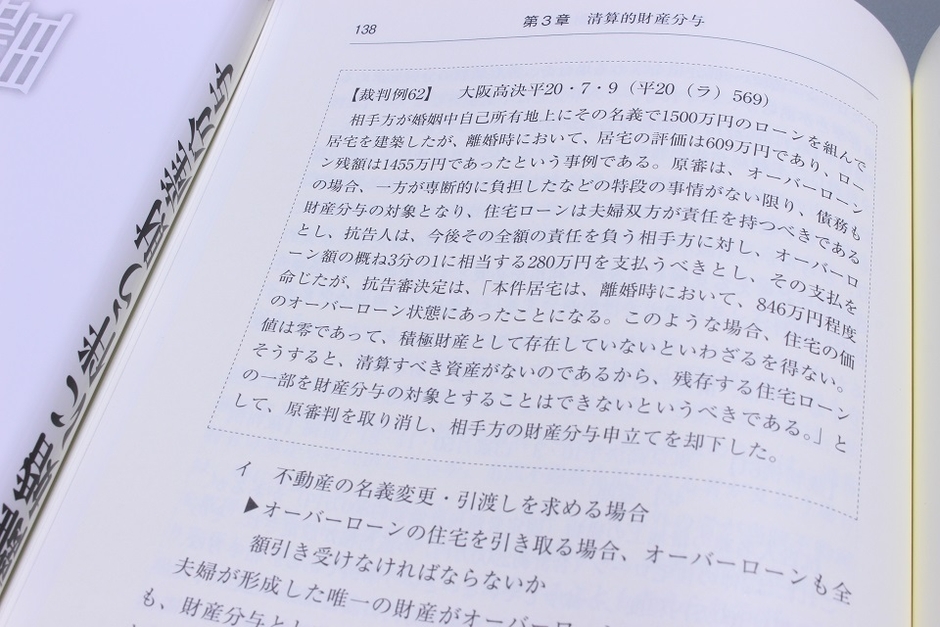 138
第3章 清算的財産分与
【裁判例62】 大阪高決平20・7・9（平20（ラ）569）
相手方が婚姻中自己所有地上にその名義で1500万円のローンを組んで
居宅を建築したが、離婚時において、居宅の評価は609万円であり、ロー
ン残額は1455万円であったという事例である。原審は、オーバーローン
の場合、一方が専断的に負担したなどの特段の事情がない限り、債務も
財産分与の対象となり、住宅ローンは夫婦双方が責任を持つべきである
とし、抗告人は、今後その全額の責任を負う相手方に対し、オーバーロ
ーン額の概ね3分の1に相当する280万円を支払うべきとし、その支払を
命じたが、抗告審決定は、「本件居宅は、離婚時において、846万円程度
のオーバーローン状態にあったことになる。このような場合、住宅の価
値は零であって、積極財産として存在していないといわざるを得ない。
そうすると、清算すべき資産がないのであるから、残存する住宅ローン
の一部を財産分与の対象とすることはできないというべきである。」と
して、原審判を取り消し、相手方の財産分与申立てを却下した。
イ 不動産の名義変更・引渡しを求める場合
▶オーバーローンの住宅を引き取る場合、オーバーローンも全
額引き受けなければならないか
夫婦が形成した唯一の財産がオー
も、財産分与と